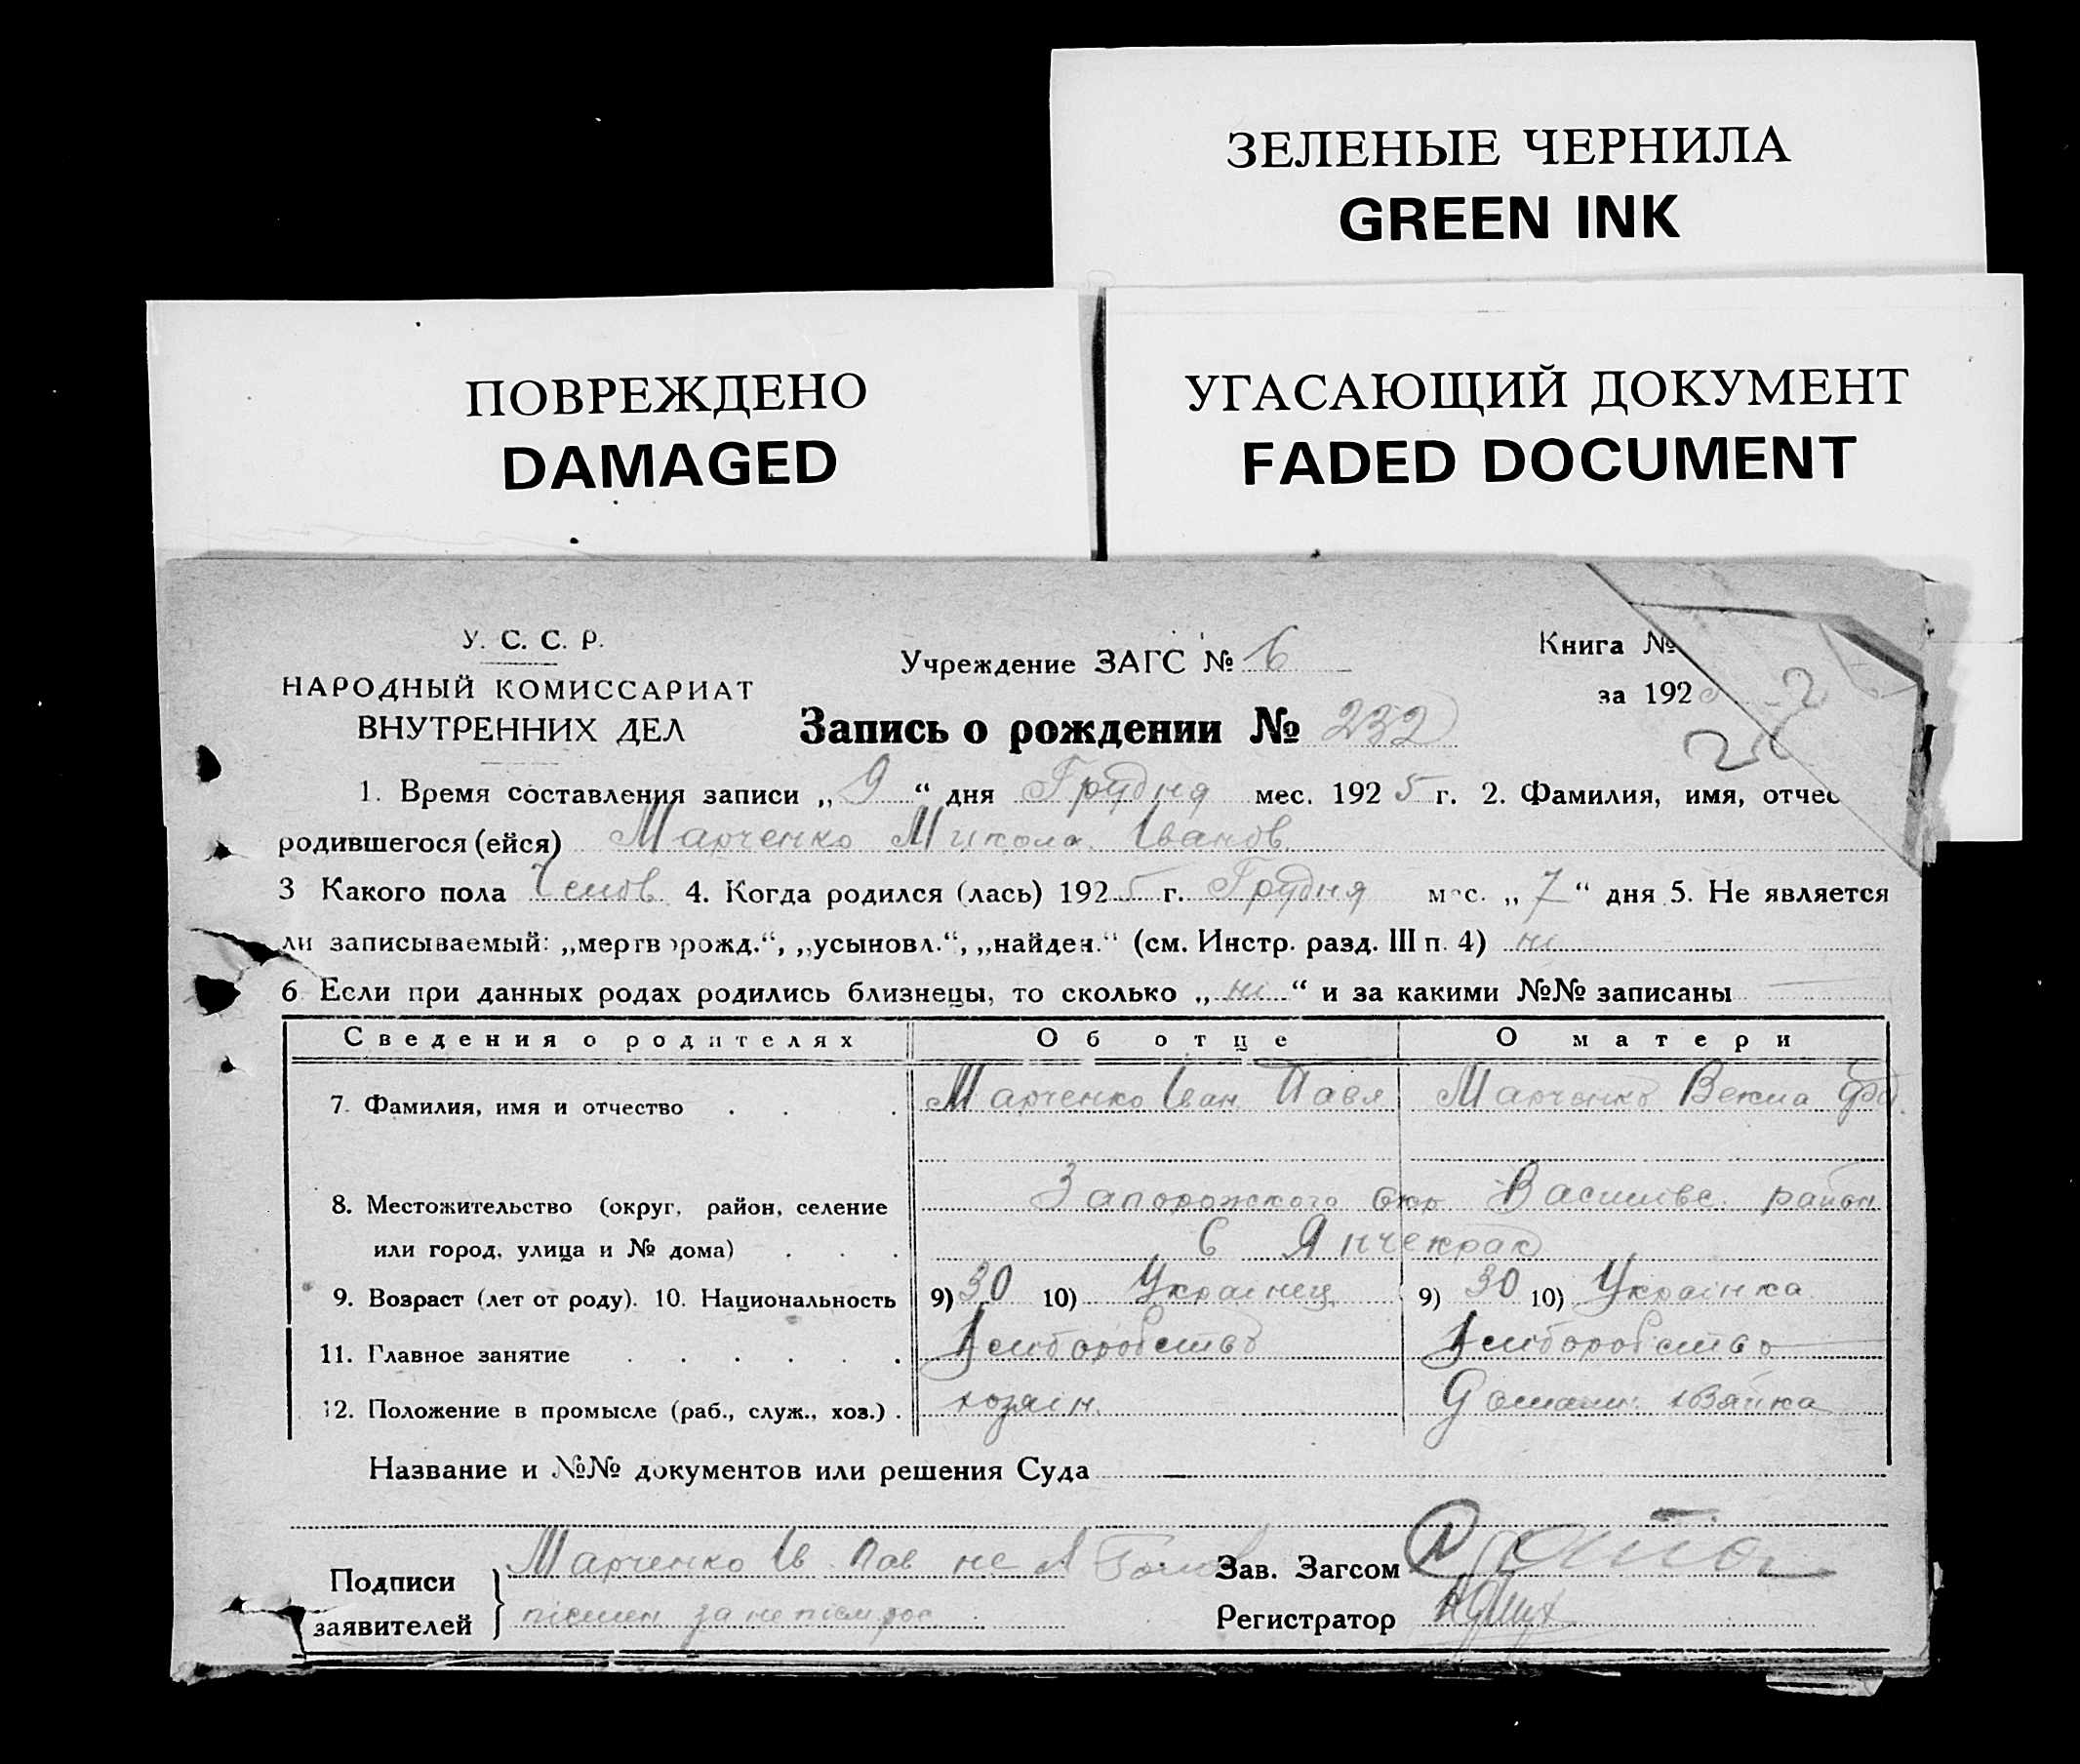 ЗЕЛЕНЫЕ ЧЕРНИЛА
GREEN INK
ПОВРЕЖДЕНО
DAMAGED
УГАСАЮЩИЙ ДОКУМЕНТ
FADED DOCUMENT
У. С. С. Р.
НАРОДНЫЙ КОМИССАРИАТ
ВНУТРЕННИХ ДЕЛ
Учреждение ЗАГС № 6
Книга №
за 192
Запись о рождении № 232
1. Время составления записи „ 9 “ дня Грудня мес. 192 5 г. 2. Фамилия, имя, отчес
родившегося (ейся) Марченко Микола Іванов
3 Какого пола Чолов 4. Когда родился (лась) 192 5 г. Грудня мес. „ 7 “ дня 5. Не является
ли записываемый: „мертворожд.“, „усыновл.“, „найден.“ (см. Инстр. разд. III п. 4) ні
6 Если при данных родах родились близнецы, то сколько „ ні “ и за какими №№ записаны
Сведения о родителях Об отце О матери
7. Фамилия, имя и отчество Марченко Іван Павл Марченко Векла
8. Местожительство (округ, район, селение Запорожского окр Василівс район
или город, улица и № дома) С Янчекрак
9. Возраст (лет от роду). 10. Национальность 9) 30 10) Українец 9) 30 10) Українка
11. Главное занятие Хліборобство Хліборобство
12. Положение в промысле (раб., служ., хоз.) хозяін Домашн
Название и №№ документов или решения Суда
Подписи заявителей Марченко Ів Пав не
письмен за непісм рос
Зав. Загсом
Регистратор